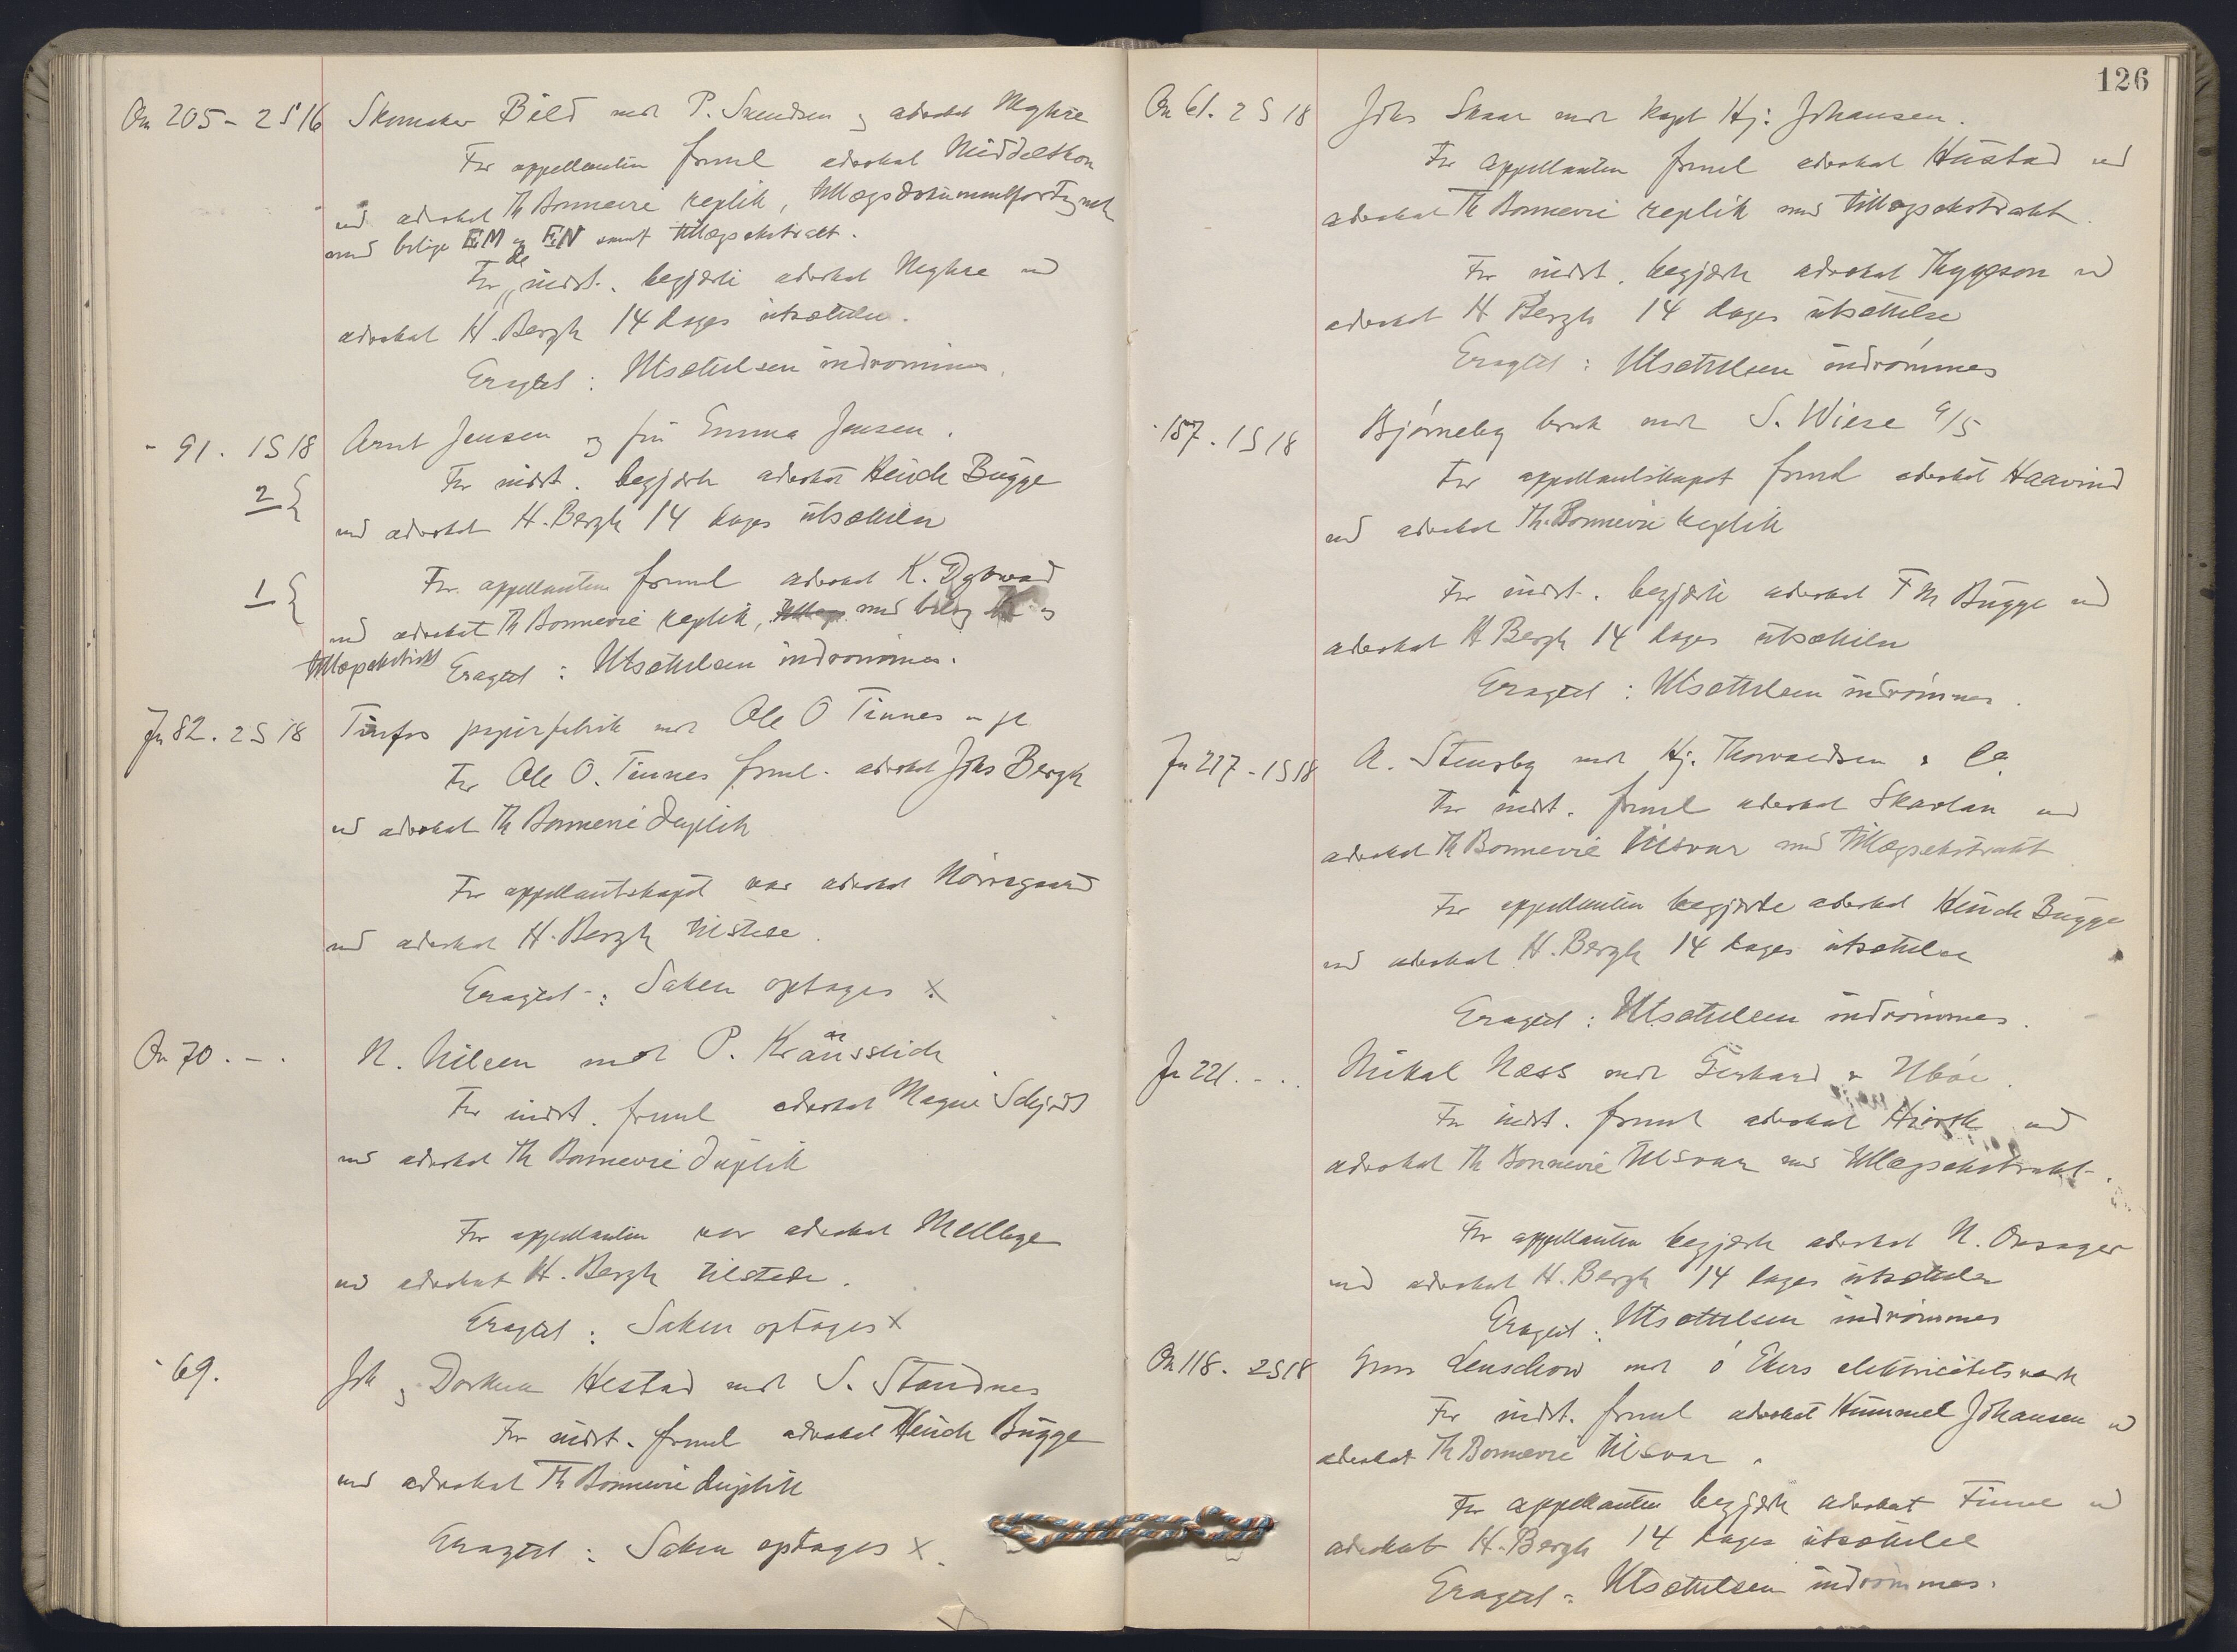 On 205 - 2 S 16 Skomaker Bild mot P. Svendsen og advokat Meyhre
For appellanten fremml advokat Middelthon
ved advokat Th Bonnevie replik, tillægsdokumentfortegnelse
med bilage EM og EN samt tillægsekstrakt.
For de indst. begjærte advokat Meyhre ved
advokat H. Bergh 14 dages utsættelse.
Eragtet: Utsættelsen indrømmes.
- 91. 1 S 18 Arnt Jensen og fru Emma Jensen.
For indst. begjærte advokat Heinch Bugge
2 { ved advokat H. Bergh 14 dages utsættelse
For appellanten fremml advokat K. Dybwad
1 { ved advokat Th Bonnevie replik, med bilag og
tillægsekstrakt Eragtet: Utsættelsen indrømmes.
Ju 82. 2 S 18 Tinfos papirfabrik mot Ole O Tinnes m fl
For Ole O. Tinnes freml. advokat Johs Bergh
ved advokat Th Bonnevie duplik
For appellantskapet var advokat Nørregaard
ved advokat H. Bergh tilstede.
Eragtet: Saken optages X
On 70. - . N. Nilsen mot P. Kränsslich
For indst. freml advokat Magne Schjødt
ved advokat Th Bonnevie duplik
For appellanten var advokat Mellbye
ved advokat H. Bergh tilstede.
Eragtet: Saken optages X
- 69. Joh og Dorthea Hestad mot S. Standnes
For indst. freml advokat Heinch Bugge
ved advokat Th Bonnevie duplik
Eragtet: Saken optages X.
126
On 61. 2 S 18 Johs Skaar mot kapt Hj. Johansen.
For appellanten freml advokat Hustad ved
advokat Th Bonnevie replik med tillægsekstrakt.
For indst. begjærte advokat Thygeson ved
advokat H Bergh 14 dages utsættelse
Eragtet: Utsættelsen indrømmes
- 157. 1 S 18 Bjørneby bruk mot S. Wiese A/S
For appellantskapet freml advokat Haavind
ved advokat Th. Bonnevie replik
For indst. begjærte advokat F M Bugge ved
advokat H Bergh 14 dages utsættelse
Eragtet: Utsættelsen indrømmes.
Ju 217 - 1 S 18 A. Stensby mot Hj. Thorvaldsen & Co
For indst. freml advokat Skavlan ved
advokat Th Bonnevie tilsvar med tillægsekstrakt
For appellanten begjærte advokat Heinch Bugge
ved advokat H. Bergh 14 dages utsættelse
Eragtet: Utsættelsen indrømmes.
Ju 221. - . . Mikal Næss mot Gerhard Ubøe.
For indst. freml advokat Hiorth ved
advokat Th Bonnevie tilsvar med tillægsekstrakt.
For appellanten begjærte advokat N. Onsager
ved advokat H. Bergh 14 dages utsættelse
Eragtet: Utsættelsen indrømmes
On 118. 2 S 18 Lenschow mot ø Ekers elektricitetsverk
For indst. freml advokat Hummel Johansen ved
advokat Th Bonnevie tilsvar.
For appellanten begjærte advokat Finne ved
advokat H. Bergh 14 dages utsættelse
Eragtet: Utsættelsen indrømmes.